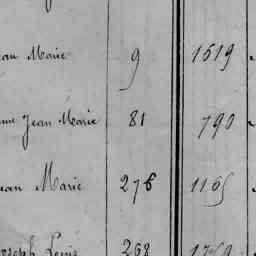 ean Marie 9 1619
me Jean Marie 81 790
ean Marie 276 1165
oseph Louis 268